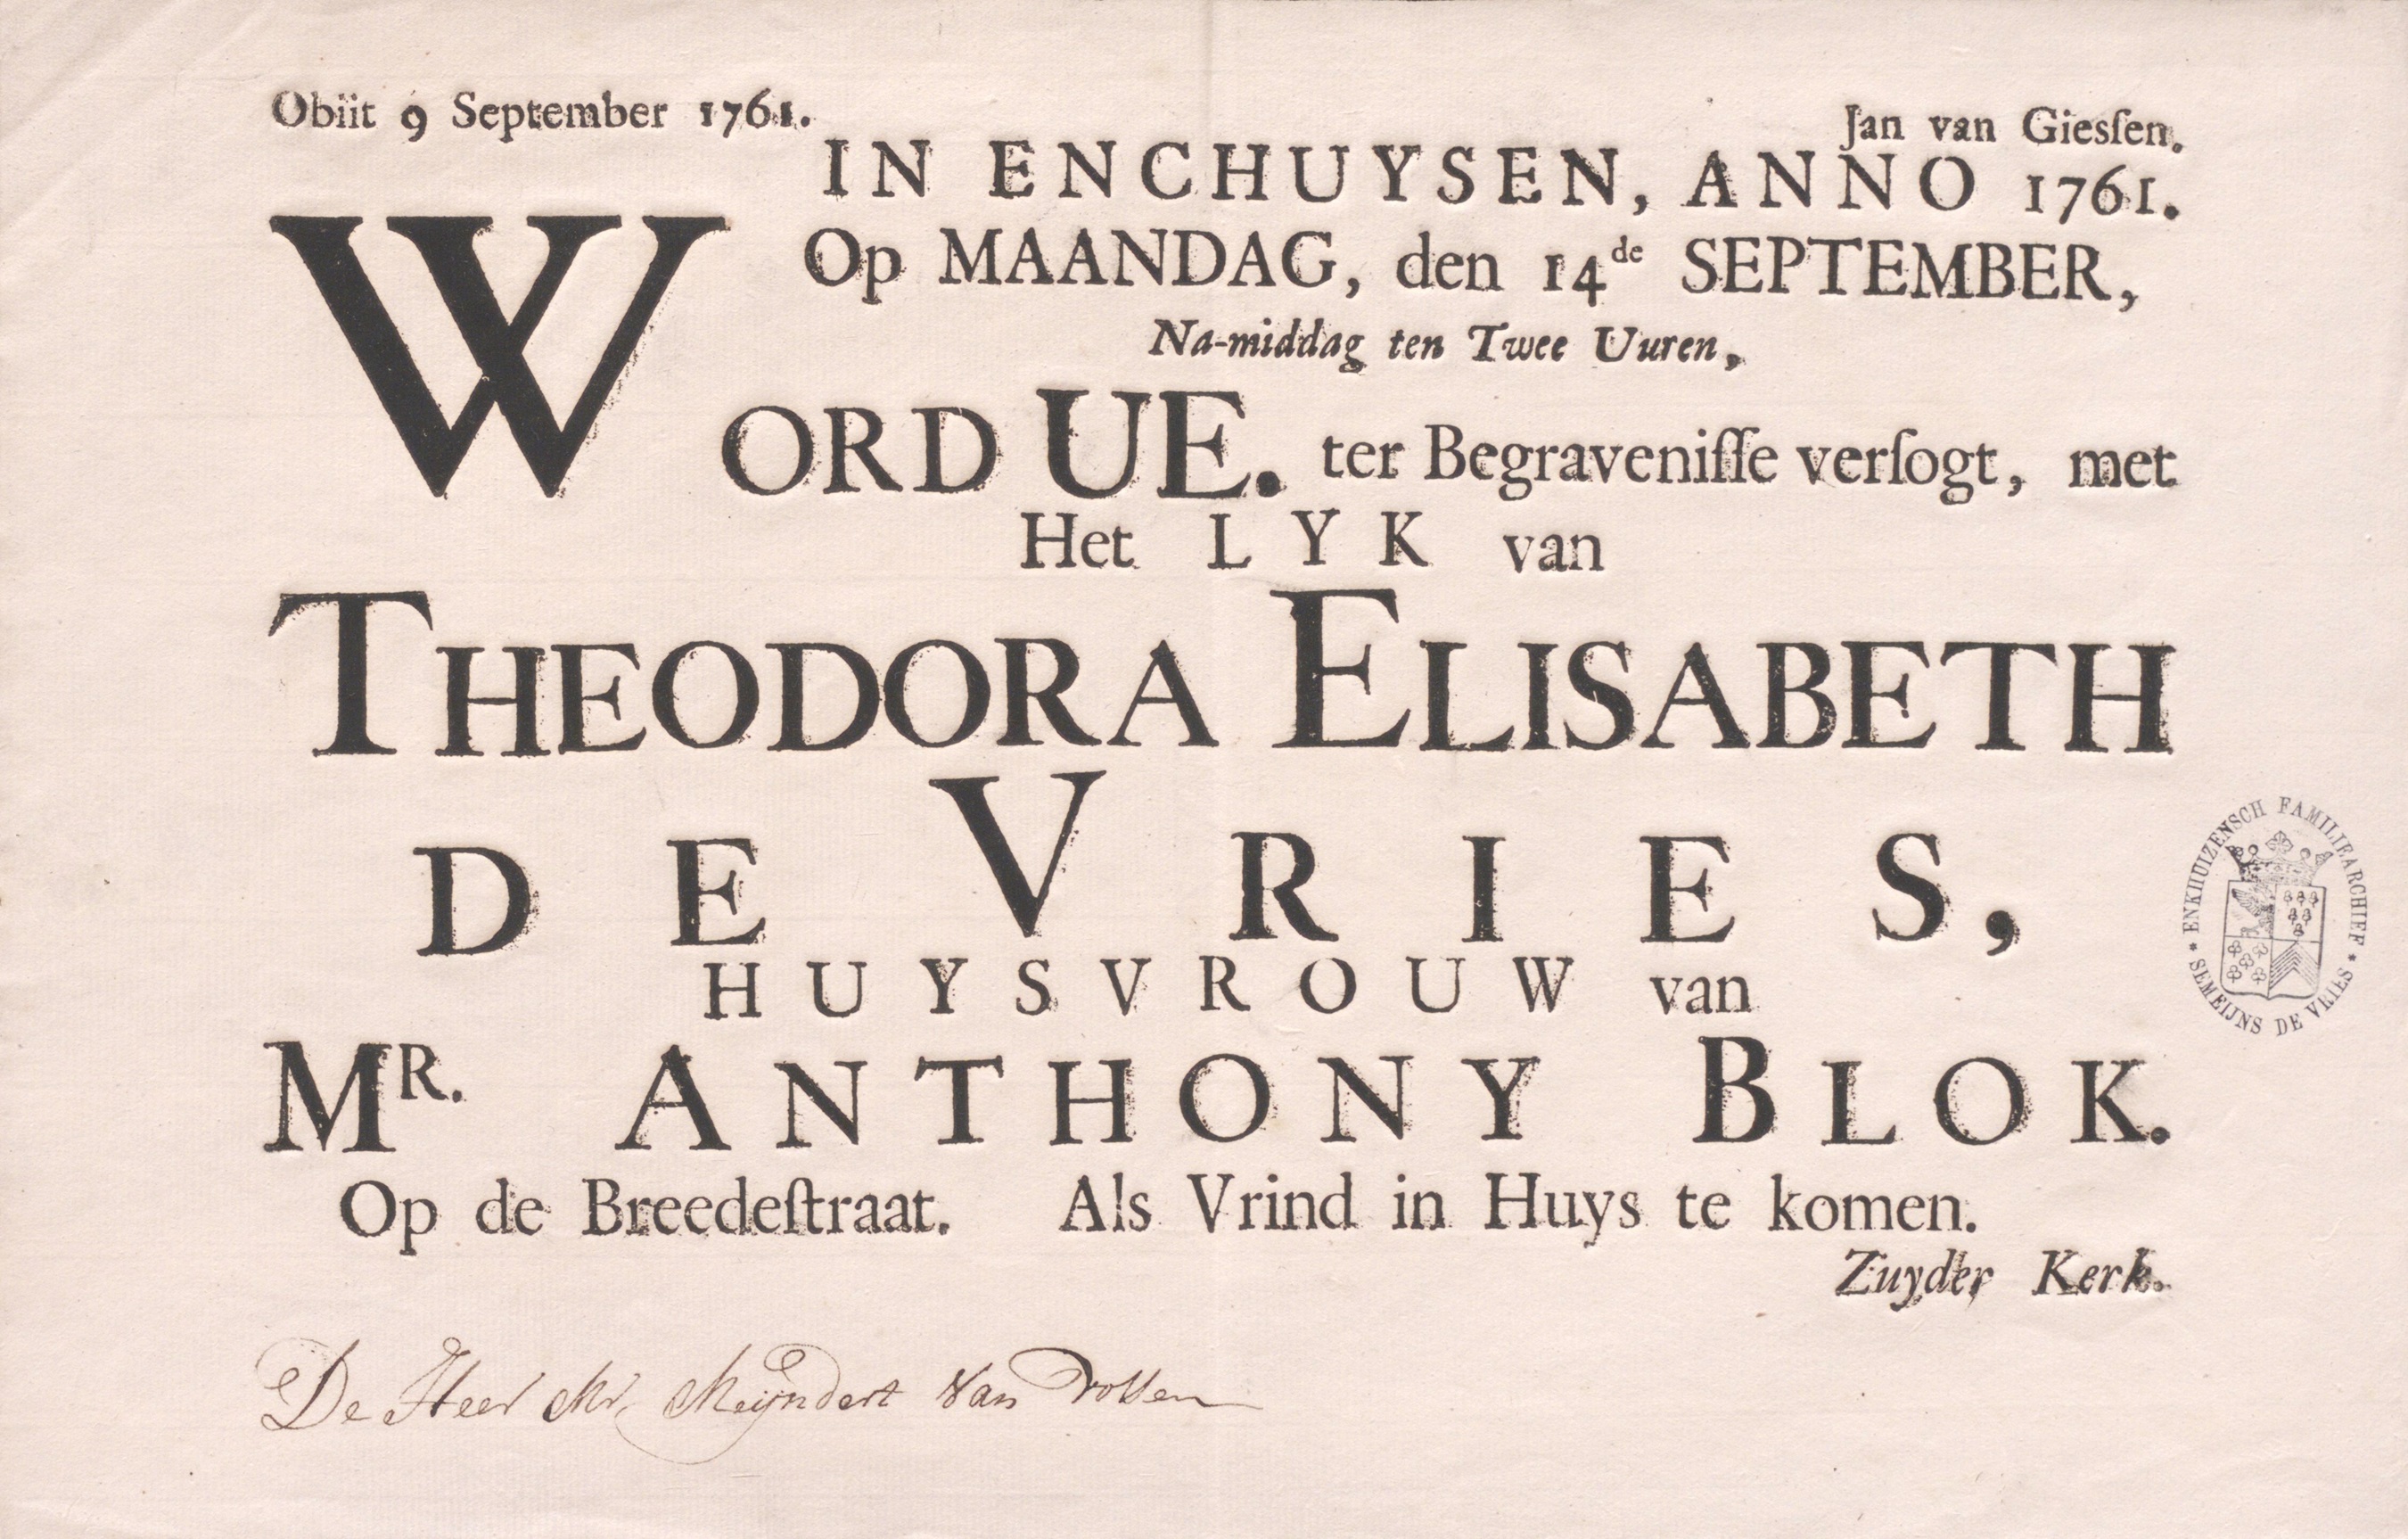 Obiit 9 September 1761.
Jan van Giesſen.
IN ENCHUYSEN, ANNO 1761.
Op MAANDAG, den 14de SEPTEMBER,
Na-middag ten Twee Uuren,
WORD UE. ter Begraveniſſe verſogt, met
Het LYK van
THEODORA ELISABETH
DE VRIES,
HUYSVROUW van
MR. ANTHONY BLOK.
Op de Breedeſtraat. Als Vrind in Huys te komen.
Zuyder Kerk.
De Heer Mr. Meijndert Van
* ENKHUIZENSCH FAMILIEARCHIEF *
SEMEIJNS DE VRIES